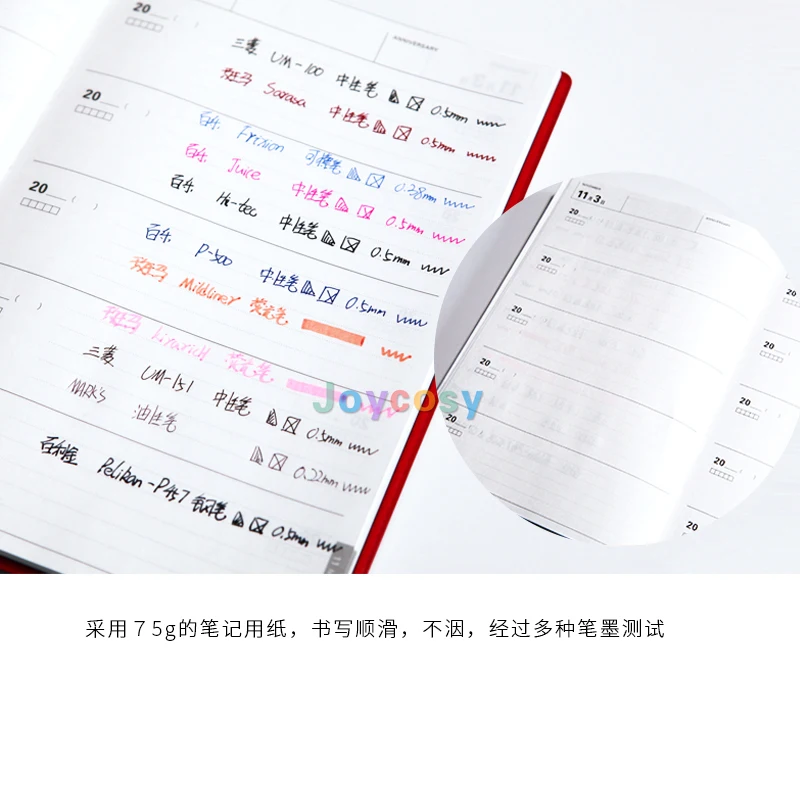 20
ANNIVERSARY
三菱 UM-100 中性笔 0.5mm
斑马 Sarasa 中性笔 0.5mm
20
百乐 Frixion 可擦笔 0.38mm
百乐 Juice 中性笔 0.5mm
20
百乐 Hi-tec 中性笔 0.5mm
百乐 P-500 中性笔 0.5mm
斑马 Mildliner 荧光笔
斑马 荧光笔
三菱 UM-151 中性笔 0.5mm
MARK'S 油性笔 0.22mm
百利金 Pelikan-P457 钢笔 0.5mm
11月3日
20
20
20
20
20
20
20
20
20
20
Joycosy
采用75g的笔记用纸，书写顺滑，不洇，经过多种笔墨测试